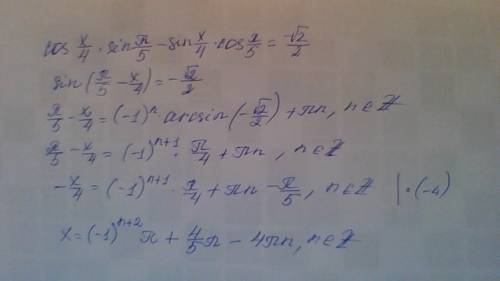 cos x/4 · sin π/5 − sin x/4 · cos π/5 = −√2/2
sin(π/5 − x/4) = −√2/2
π/5 − x/4 = (−1)ⁿ · arcsin(−√2/2) + πn, n∈Z
π/5 − x/4 = (−1)ⁿ⁺¹ · π/4 + πn, n∈Z
−x/4 = (−1)ⁿ⁺¹ · π/4 + πn − π/5, n∈Z |·(−4)
x = (−1)ⁿ⁺² π + 4/5 π − 4πn, n∈Z